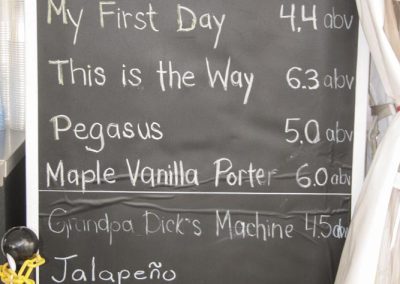 My First Day 4.4 abv
This is the Way 6.3 abv
Pegasus 5.0 abv
Maple Vanilla Porter 6.0 abv
Grandpa Dick's Machine 4.5 abv
Jalapeño